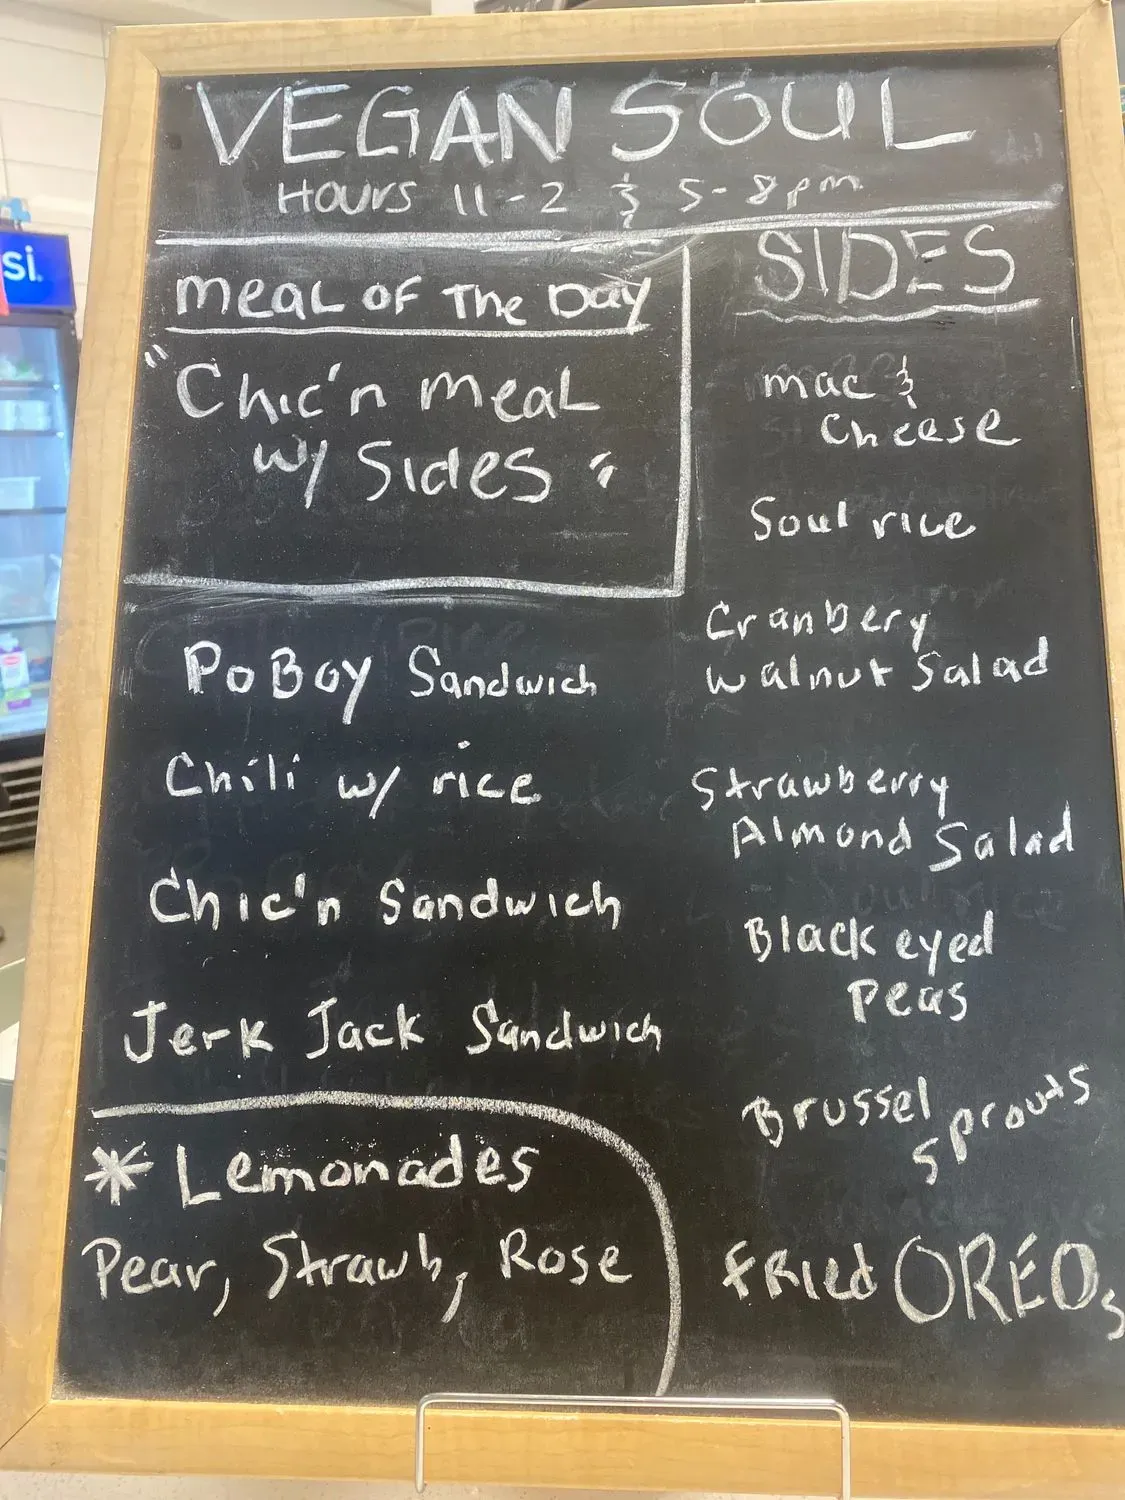 VEGAN SOUL
HOURS 11-2 & 5-8pm
meal of The Day
"Chic'n meal
w/ Sides"
PoBoy Sandwich
Chili w/ rice
Chic'n Sandwich
Jerk Jack Sandwich
* Lemonades
Pear, Strawb, Rose
SIDES
mac &
Cheese
Soul rice
Cranbery
walnut Salad
Strawberry
Almond Salad
Black eyed
Peas
Brussel
sprouts
fried OREOs
si.